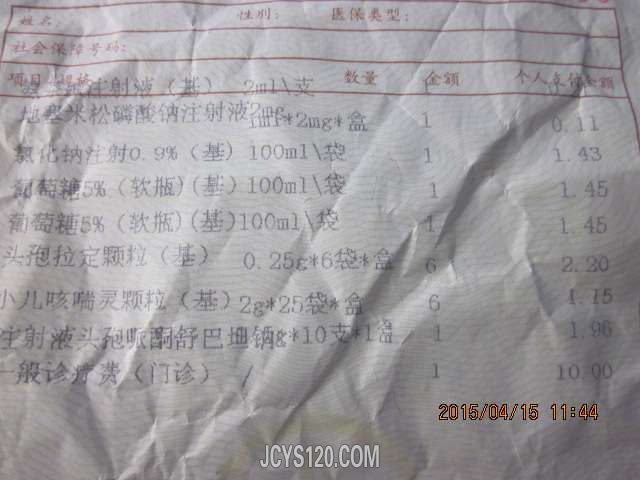 姓名: 性别: 医保类型:
社会保障号码:
项目/规格 数量 金额 个人支付金额
注射液(基) 2ml\支 1
地塞米松磷酸钠注射液2mg 1ml*2mg*盒 1 0.11
氯化钠注射0.9%(基) 100ml\袋 1 1.43
葡萄糖5%(软瓶)(基)100ml\袋 1 1.45
葡萄糖5%(软瓶)(基)100ml\袋 1 1.45
头孢拉定颗粒(基) 0.25g*6袋*盒 6 2.20
小儿咳喘灵颗粒(基) 2g*25袋*盒 6 1.15
注射液头孢哌酮舒巴坦钠g*10支*1盒 1 1.96
一般诊疗费(门诊) / 1 10.00
2015/04/15 11:44
JCYS120.COM